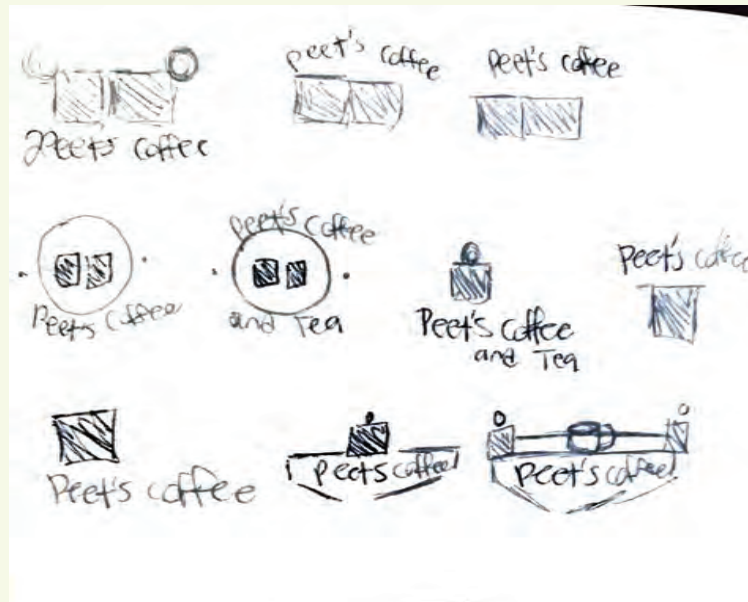 Peet's coffee
peet's coffee
Peet's coffee
Peet's Coffee
Peet's Coffee
and Tea
Peet's coffee
and Tea
Peet's coffee
Peet's coffee
Peets coffee
Peet's coffee